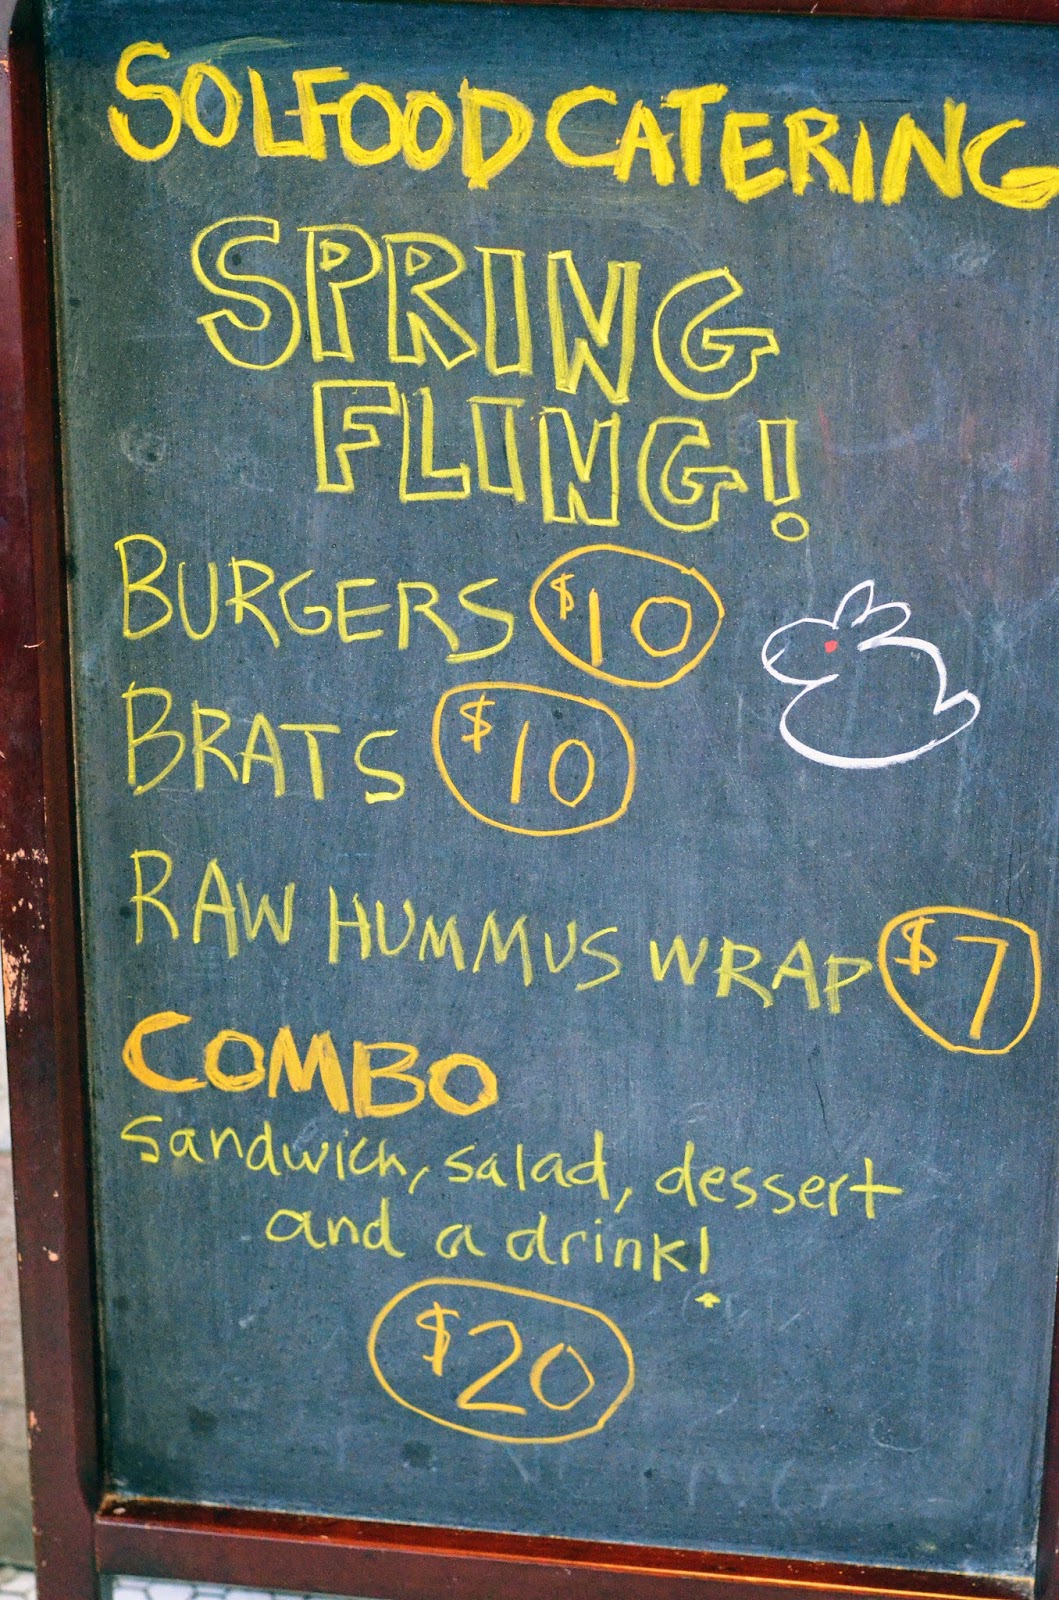 SOLFOOD CATERING
SPRING
FLING!
BURGERS $10
BRATS $10
RAW HUMMUS WRAP $7
COMBO
sandwich, salad, dessert
and a drink!
$20